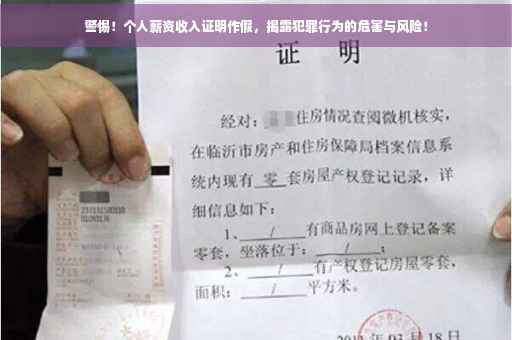 警惕！个人薪资收入证明作假，揭露犯罪行为的危害与风险！
证 明
经对：住房情况查阅微机核实，
在临沂市房产和住房保障局档案信息系
统内现有 零 套房屋产权登记记录，详
细信息如下：
1、 / 有商品房网上登记备案
零套，坐落位于： / ；
2、 / 有产权登记房屋零套，
面积： / 平方米。
03月18日